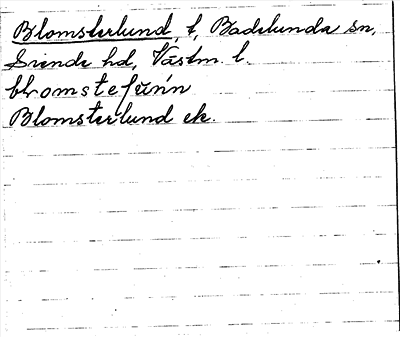 Blomsterlund, t, Badelunda sn,
Siende hd, Västm. l.
Blomsterlund ek.